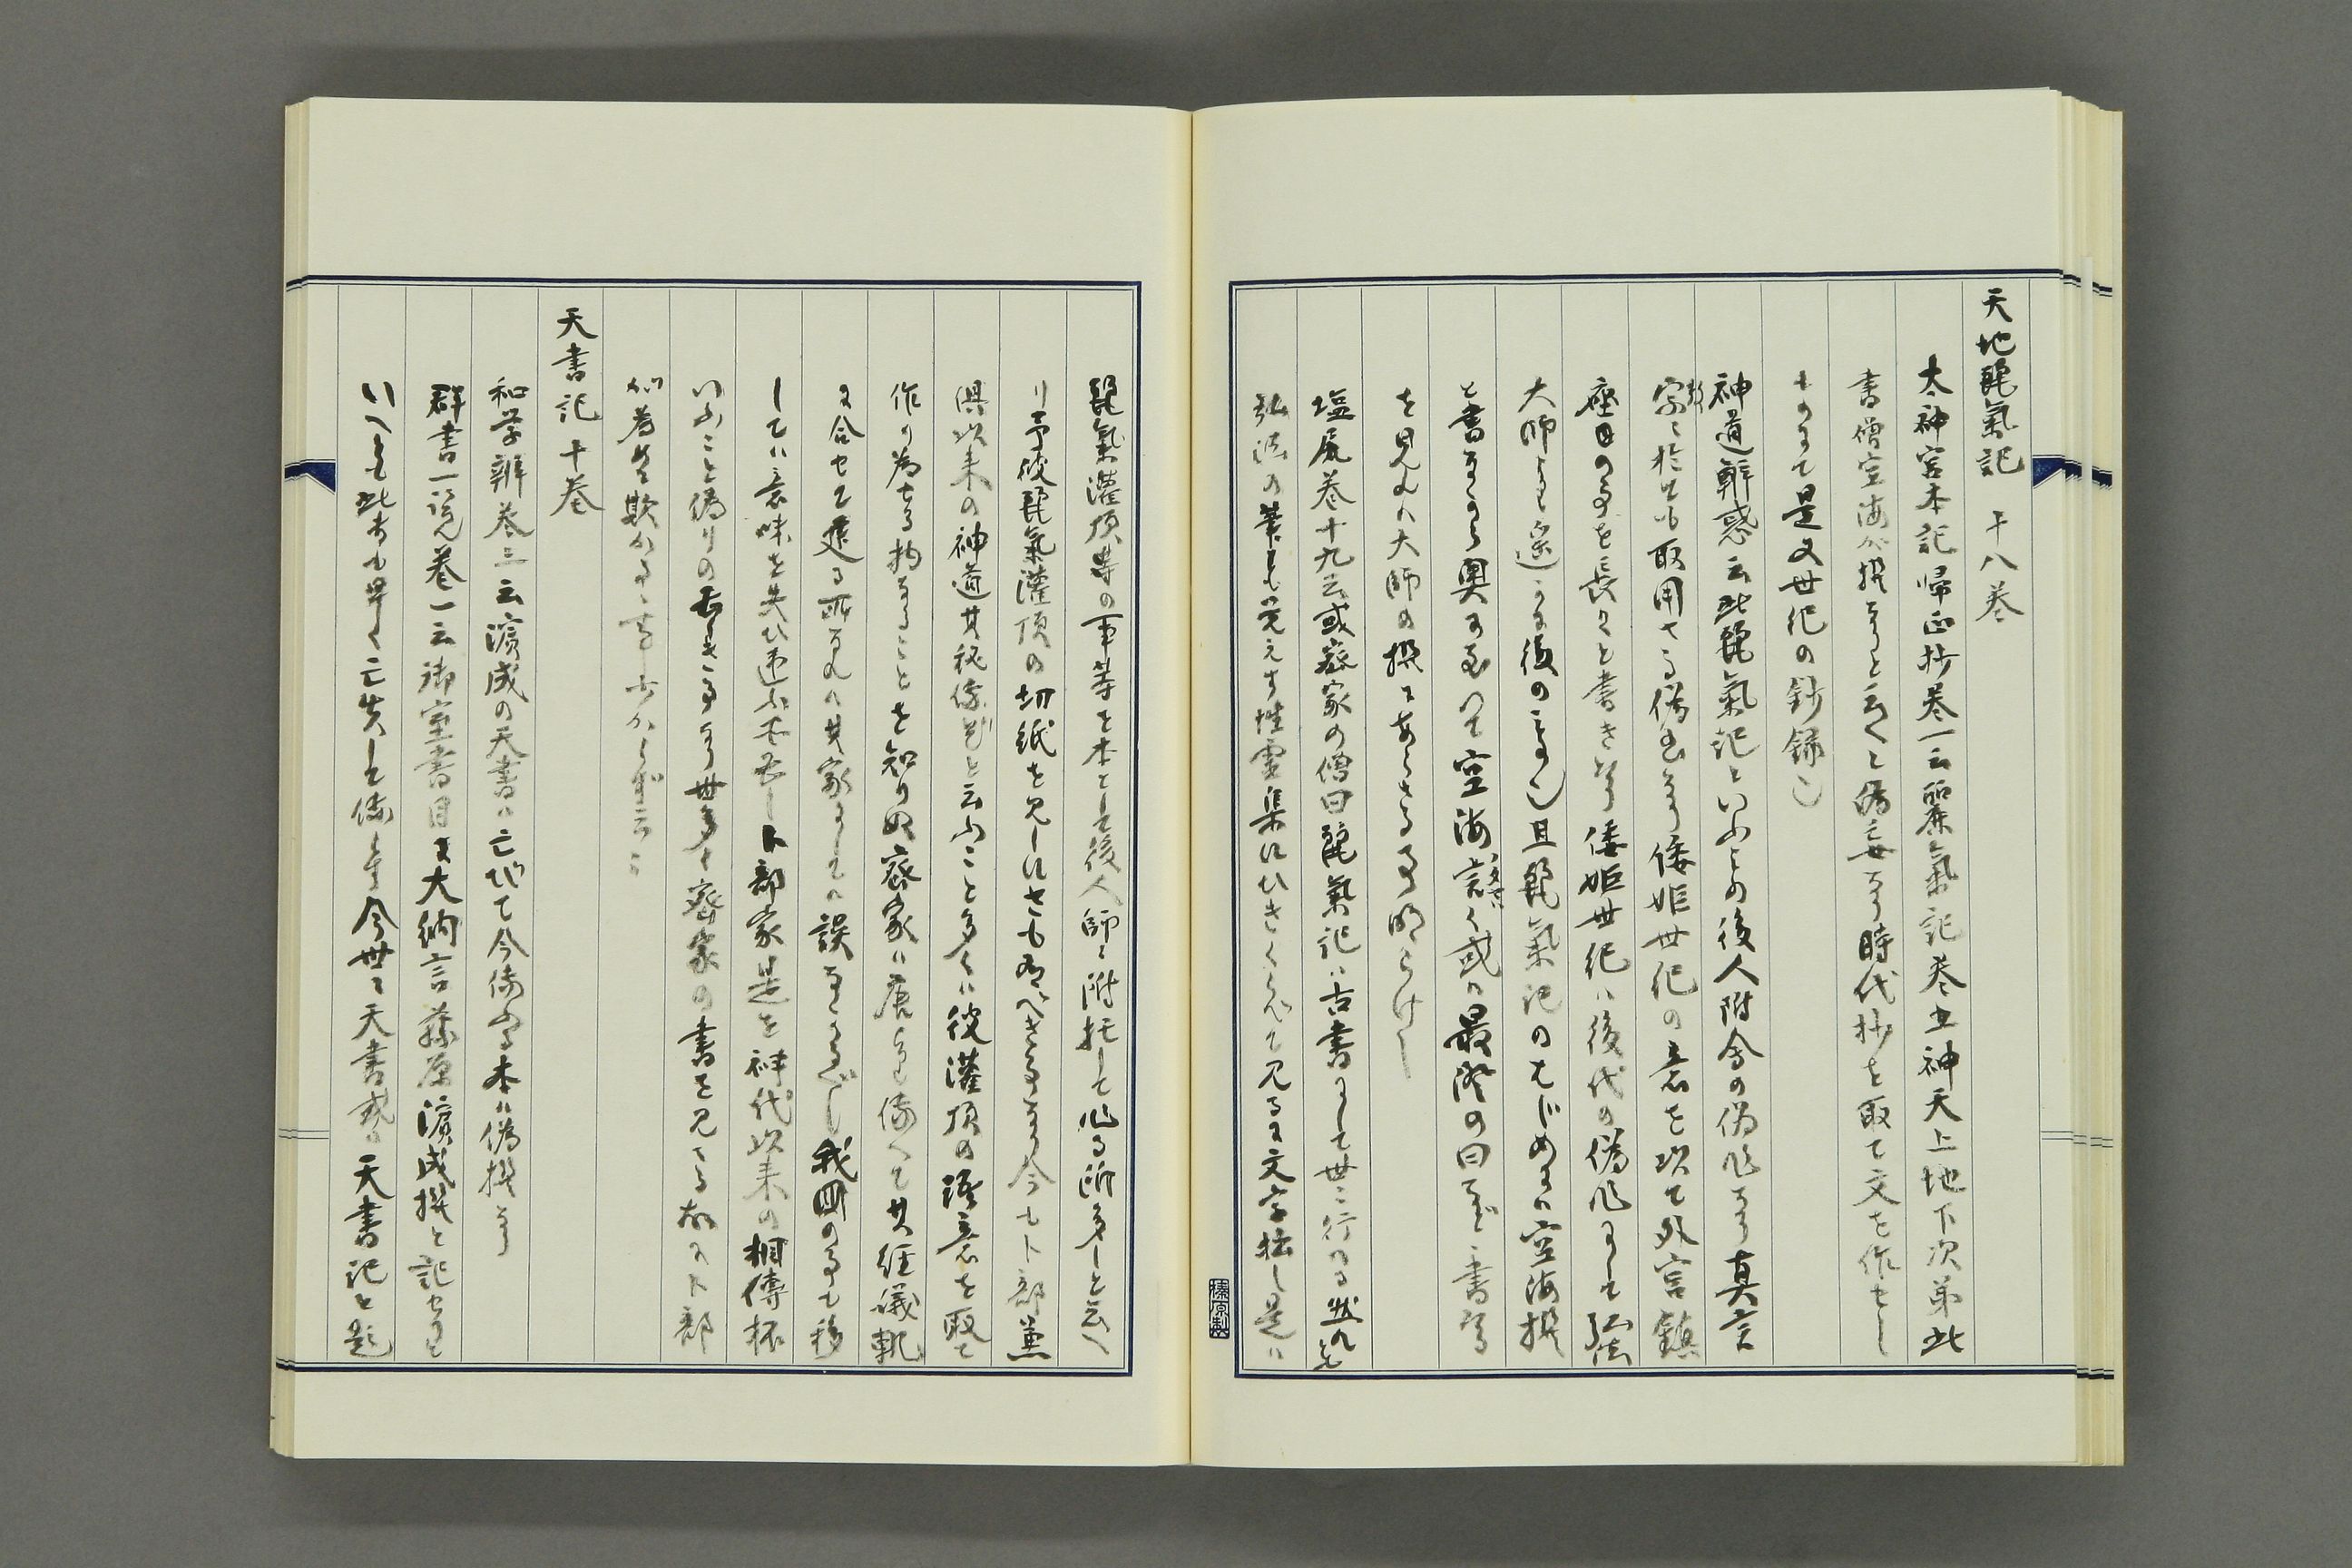 天地麗氣記 十八巻
太神宮本記歸正抄巻一云麗氣記巻五神天上地下次第此
書僧空海が撰なりと云く偽妄なり時代抄を取て文を作せし
ものにて是又世紀の鈔録也
神道辨惑云此麗氣記といふもの後人附會の偽作なり真言
宗に於て取用する偽書なり倭姫世紀の意を以て外宮鎮
座日の事を長々と書きけり倭姫世紀は後代の偽作にして弘法
大師より遥かに後のもの也且麗氣記のはじめには空海撰
と書ながら奥に至つて空海言く或は最澄の曰など書り
を見れハ大師の撰にあらさる事明らけし
塩尻巻十九云或密家の僧曰麗氣記ハ古書にして世に行ハる然れとも
弘法の筆とも覚えす性霊集にひきくらべて見るに文字拙し是ハ
麗氣灌頂等の事等を本として後人師に附托して作る所多しと云へ
り予彼麗氣灌頂の切紙を見しにさも有べき事なり今も卜部兼
倶以来の神道其秘傳など云ふこと多くは彼灌頂の語意を取て
作り為たる物なることを知りぬ密家ハ唐より傳へて其経儀軌
に合せて建る所なれハ其家にしてハ誤なかるべし我國の事も移
してハ意味を失ひ違ふ不思し卜部家是を神代以来の相傳杯
いふこと偽りの甚しき事なり世多く密家の書を見さる故に卜部
が為に欺かるゝ事少からず云々
天書記 十巻
和学辨巻三云濱成の天書ハ亡びて今傳ふる本ハ偽撰なり
群書一覧巻一云御室書目ニ大納言藤原濱成撰と記せりと
いへとも此書も早く亡失して傳らす今世ニ天書或ハ天書記と題
榛原製